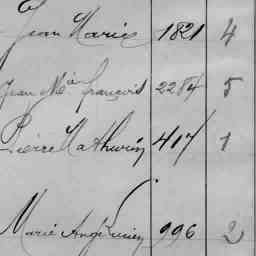 Jean Marie 1821 4
Jean Mie françois 2284 5
Pierre Mathurin 417 1
Marie 996 2